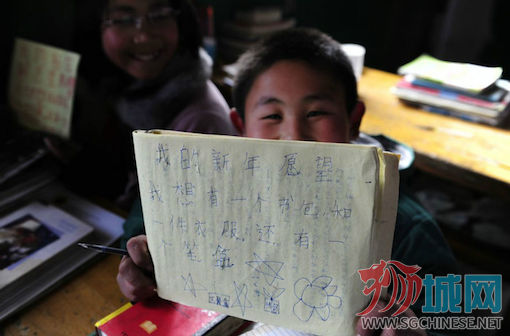 我的新年愿望
我想有一个书包和
一件衣服还有一
个笔筒
狮城网
WWW.SGCHINESE.NET